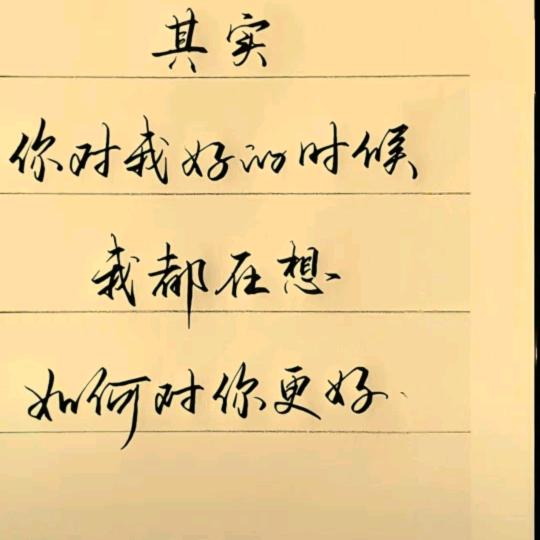 其实
你对我好的时候
我都在想
如何对你更好